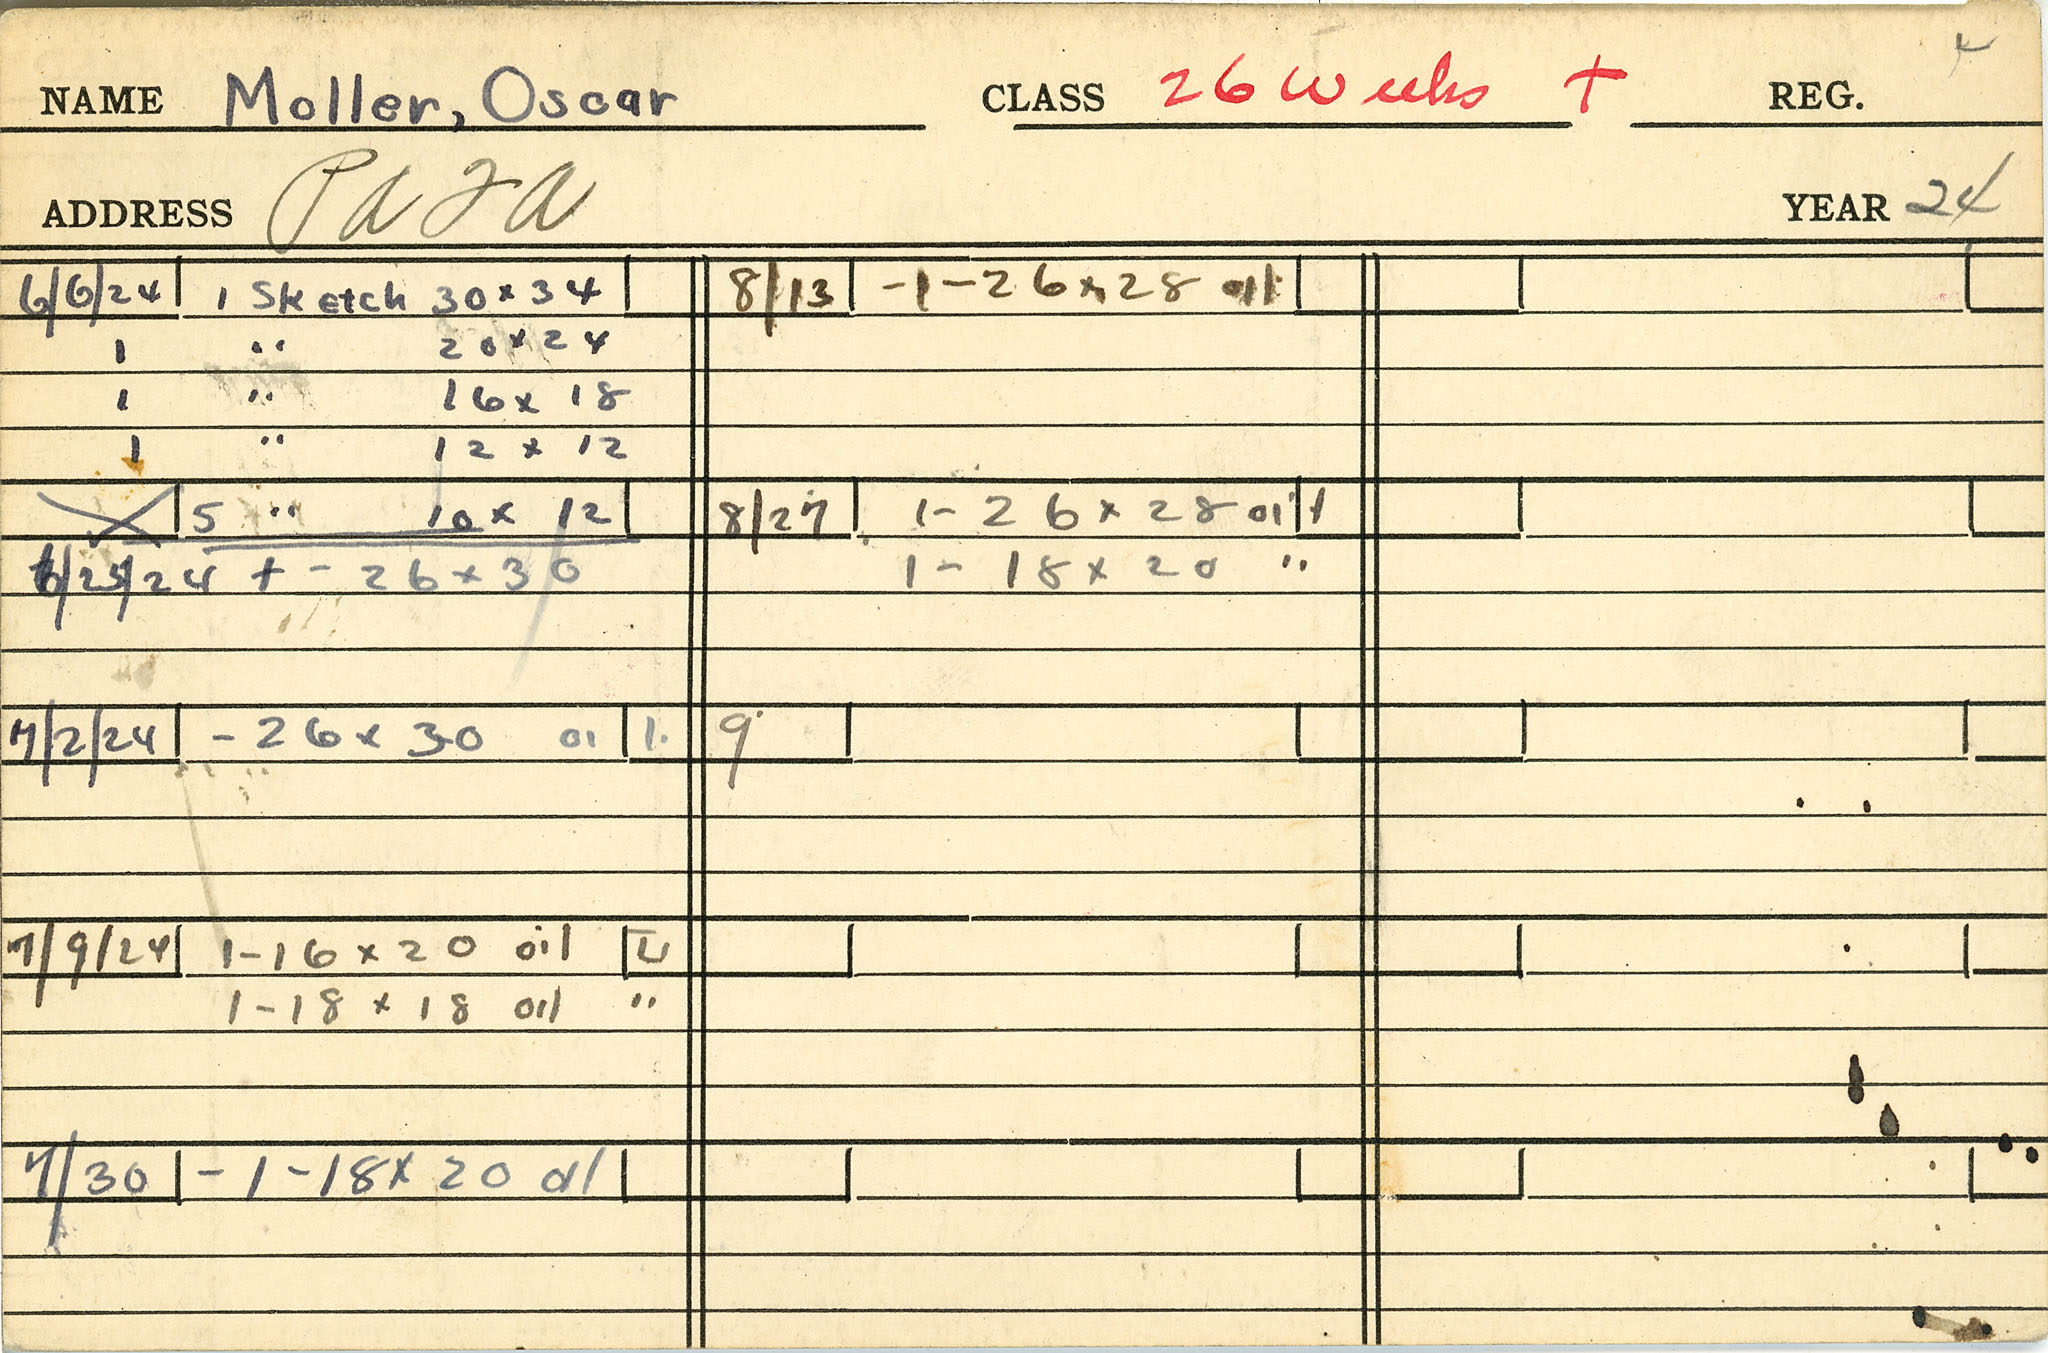 NAME Moller, Oscar CLASS 26 Weeks + REG.
ADDRESS YEAR 24
6/6/24 1 Sketch 30 x 34
1 " 20 x 24
1 " 16 x 18
1 " 12 x 12
5 " 10 x 12
6/25/24 + - 26 x 30
7/2/24 - 26 x 30 oil.
7/9/24 1-16 x 20 oil
1-18 x 18 oil "
7/30 -1-18 x 20 oil
8/13 -1-26 x 28 oil
8/27 1- 26 x 28 oil
1- 18 x 20 "
9